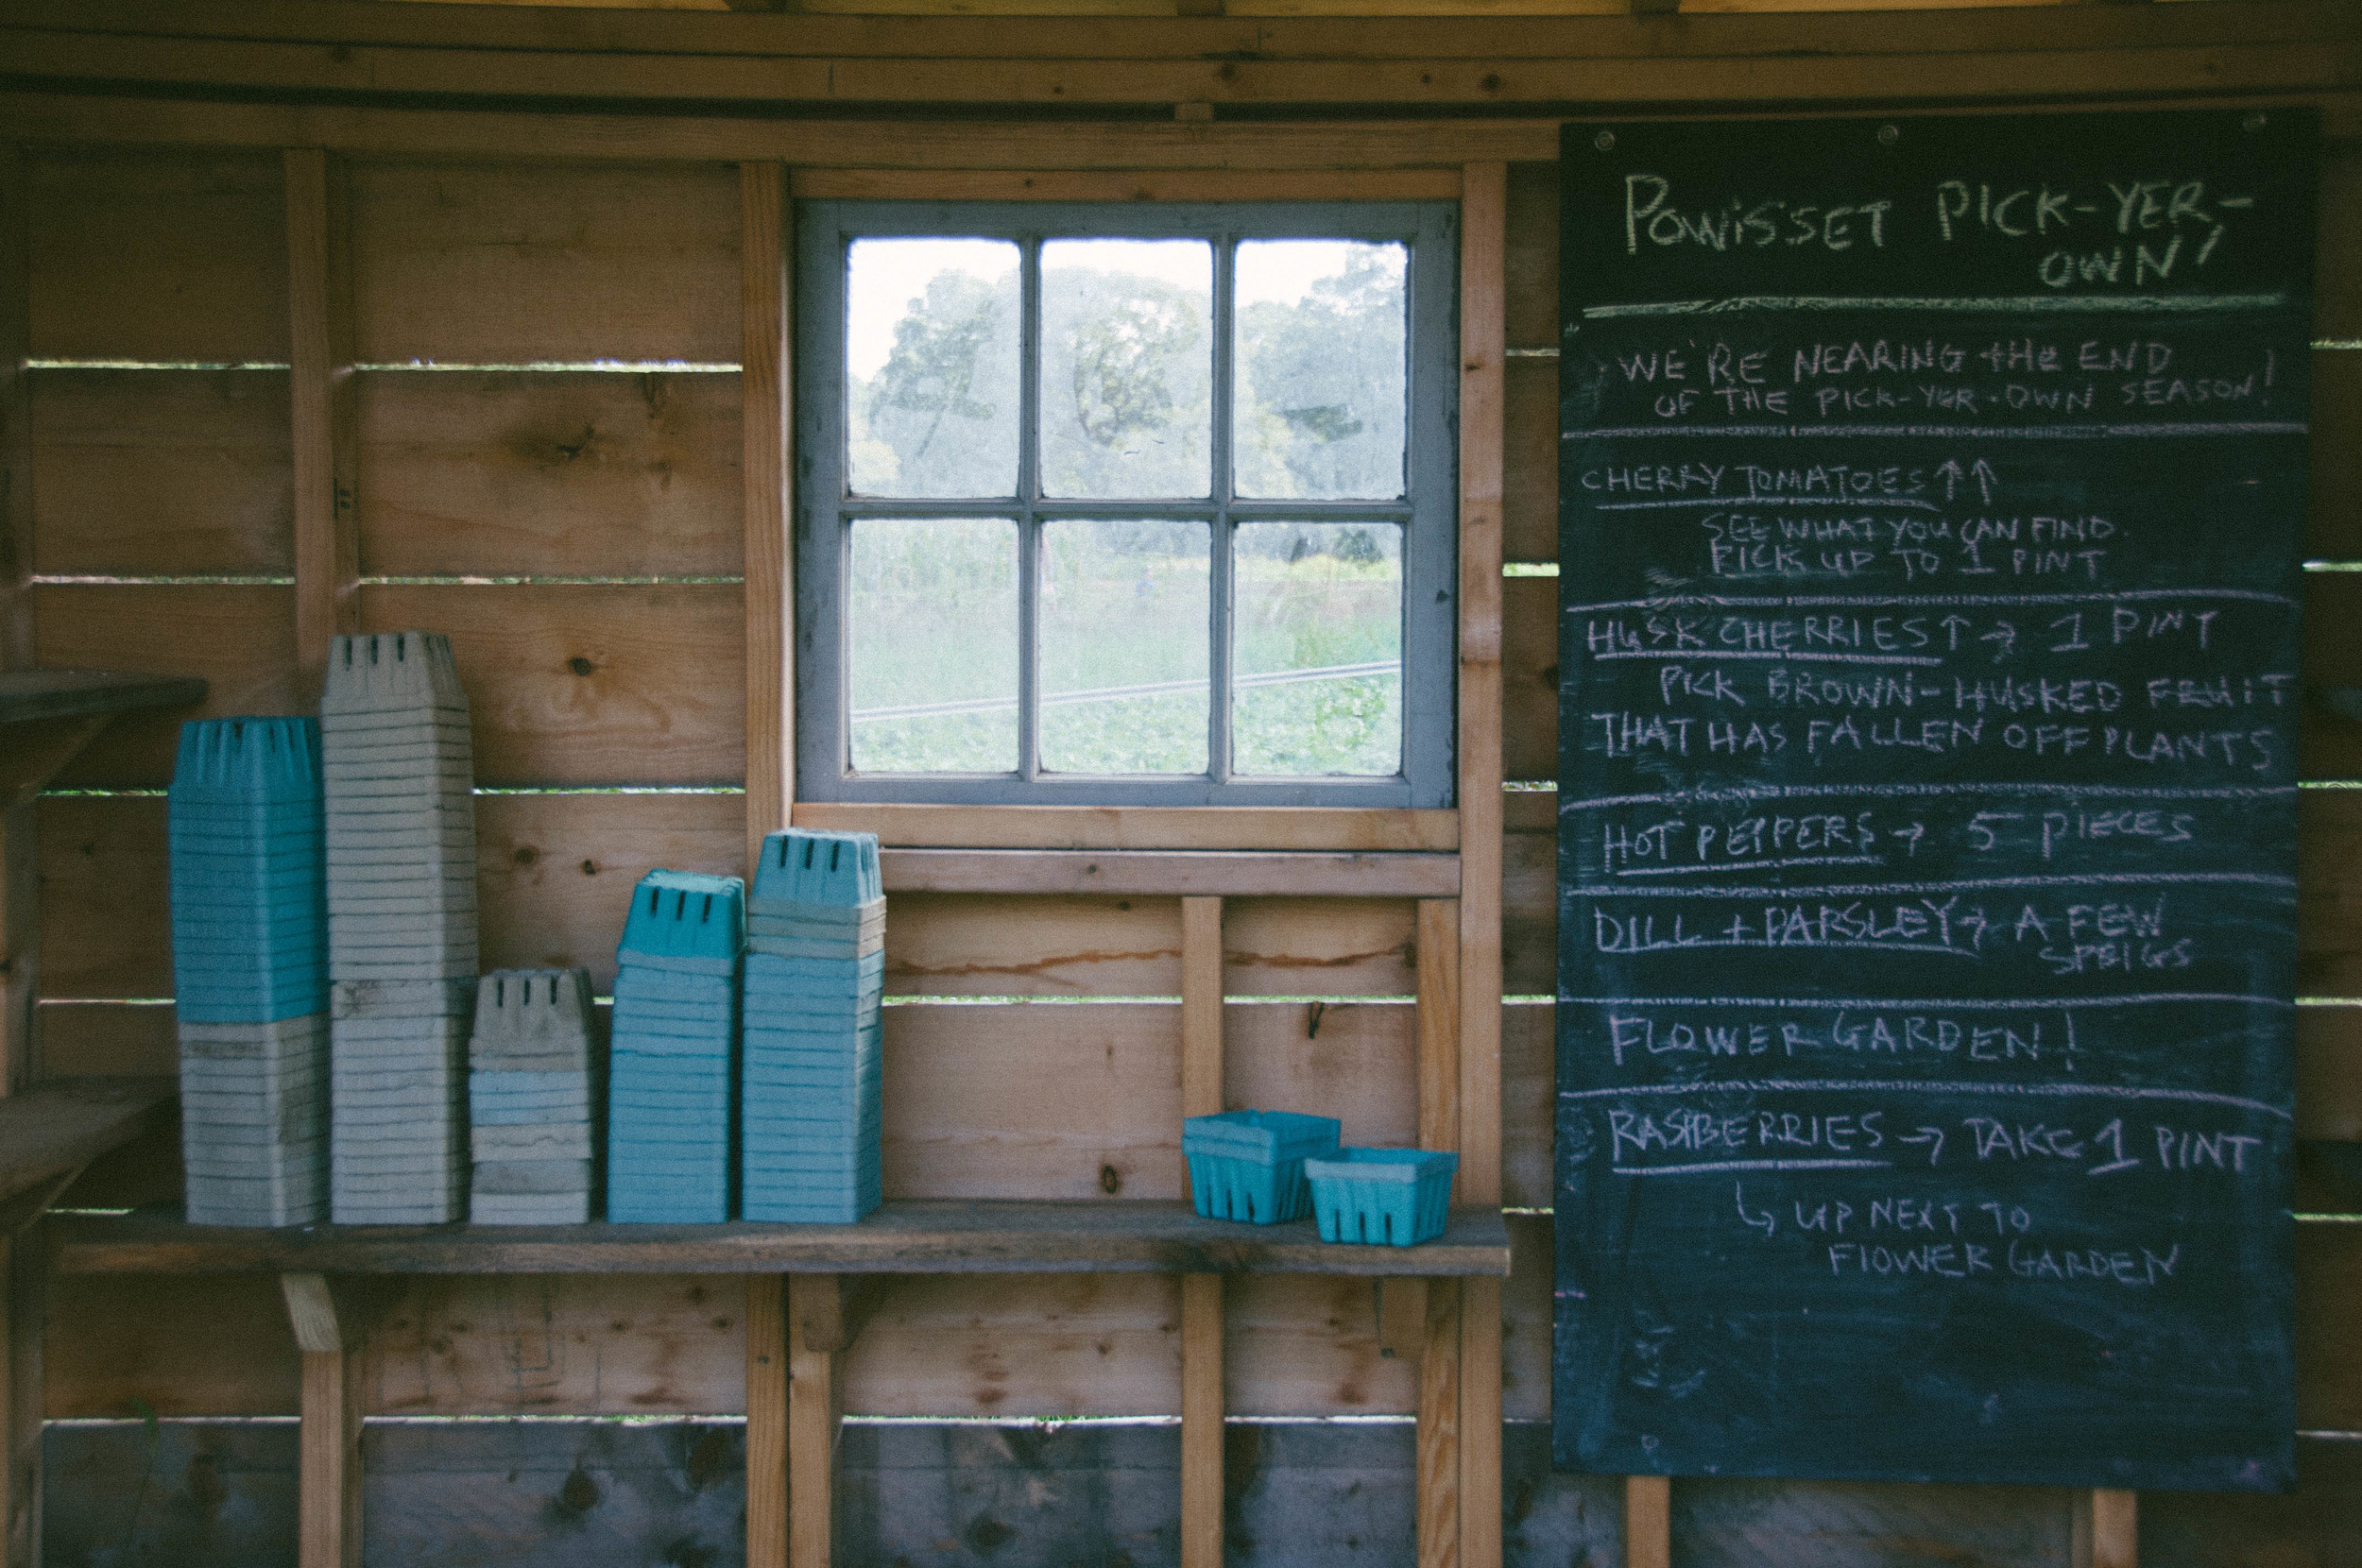 POWISSET PICK-YER-
OWN!
WE'RE NEARING tHe END
OF THE PICK-YER-OWN SEASON!
CHERRY TOMATOES ↑↑
SEE WHAT YOU CAN FIND.
PICK UP TO 1 PINT
HUSK CHERRIES ↑ → 1 PINT
PICK BROWN-HUSKED FRUIT
THAT HAS FALLEN OFF PLANTS
HOT PEPPERS → 5 PIECES
DILL + PARSLEY → A FEW
SPRIGS
FLOWER GARDEN!
RASPBERRIES → TAKE 1 PINT
↳ UP NEXT TO
FLOWER GARDEN